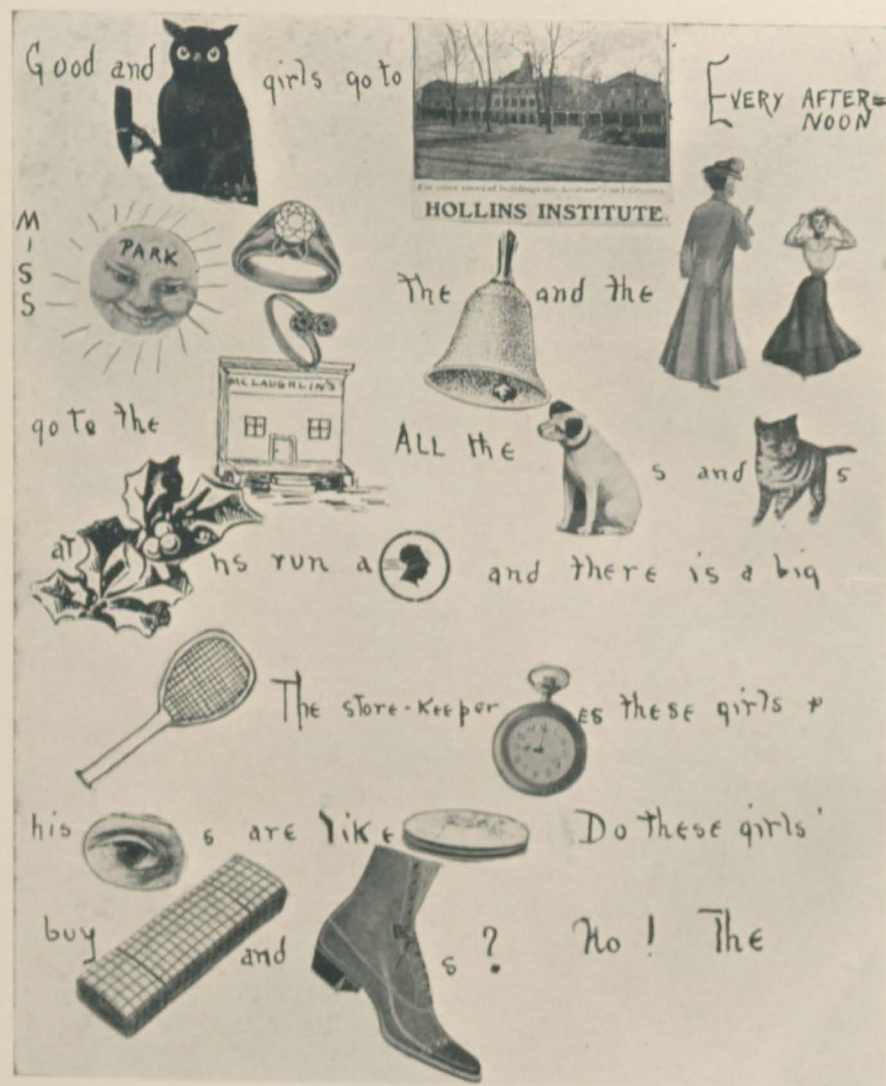 Good and girls go to
For other views of buildings see
HOLLINS INSTITUTE.
EVERY AFTER=
NOON
MISS
PARK
the and the
MC LAUGHLIN'S
go To the
ALL the s and s
at hs run a and there is a big
The store-keeper es these girls &
his s are like Do these girls'
buy and s ? No ! The